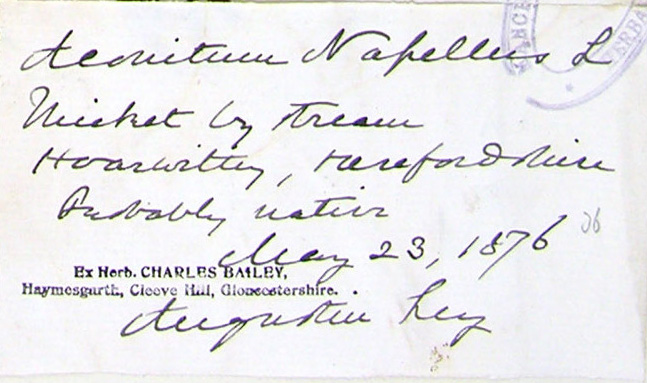 Aconitum Napellus L
Thicket by stream
Hoarwithy, Herefordshire
Probably native
May 23, 1876
Ex Herb. CHARLES BAILEY,
Haymesgarth, Cleeve Hill, Gloucestershire.
Augustin Ley